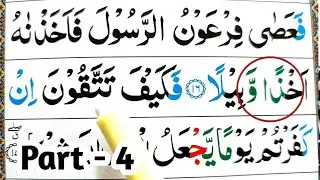 فَعَصٰى فِرْعَوْنُ الرَّسُوْلَ فَاَخَذْنٰهُ
اَخْذًا وَّبِيْلًا ۝١٦ فَكَيْفَ تَتَّقُوْنَ اِنْ
كَفَرْتُمْ يَوْمًا يَّجْعَلُ
Part - 4